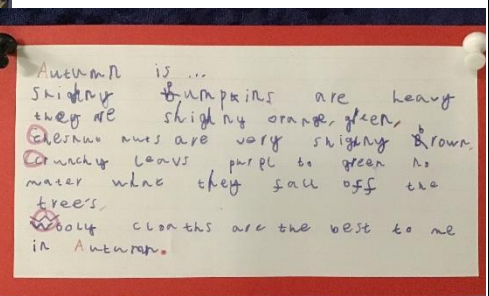 Autumn is ...
Shighny Pumpkins are heavy
they are shighny orange, green,
Chesnuo nuts are very shighny brown,
Crunchy leavs purpl to green no
mater what they fall off the
tree's,
Wooly cloaths are the best to me
in Autumn.